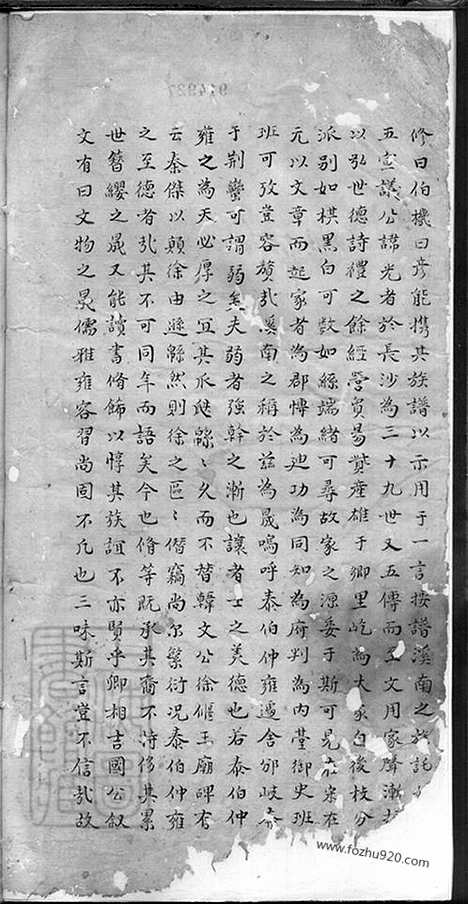 修曰伯機曰彦能携其族譜以示用于一言按譜溪南之族託
五官議公諱光者於長沙為三十九世又五傳而至文用家聲漸
以弘世德詩禮之餘經營貿易貲產雄于鄉里屹為大家自後枝分
派別如棋黑白可數如絲端緒可尋故家之源委于斯可見在宋在
元以文章而起家者為郡博為迪功為同知為府判為內臺御史班
班可攷豈容贅哉溪南之稱於茲為晟嗚呼泰伯仲雍邊舍邠岐奔
于荆蠻可謂弱矣夫弱者強幹之漸也讓者士之美德也若泰伯仲
雍之為天必厚之宜其瓜瓞緜〻久而不替韓文公徐偃王廟碑有
云秦傑以顛徐由遜緜然則徐之區〻僭竊尚尔蘩衍况泰伯仲雍
之至德者哉其不可同年而語矣今也脩等既承其裔不特修其累
世簪纓之晟又能讀書脩飾以惇其族誼不亦賢乎卿相吉國公叙
文有曰文物之晟儒雅雍容習尚固不凡也三味斯言豈不信哉故
914927
www.fozhu920.com